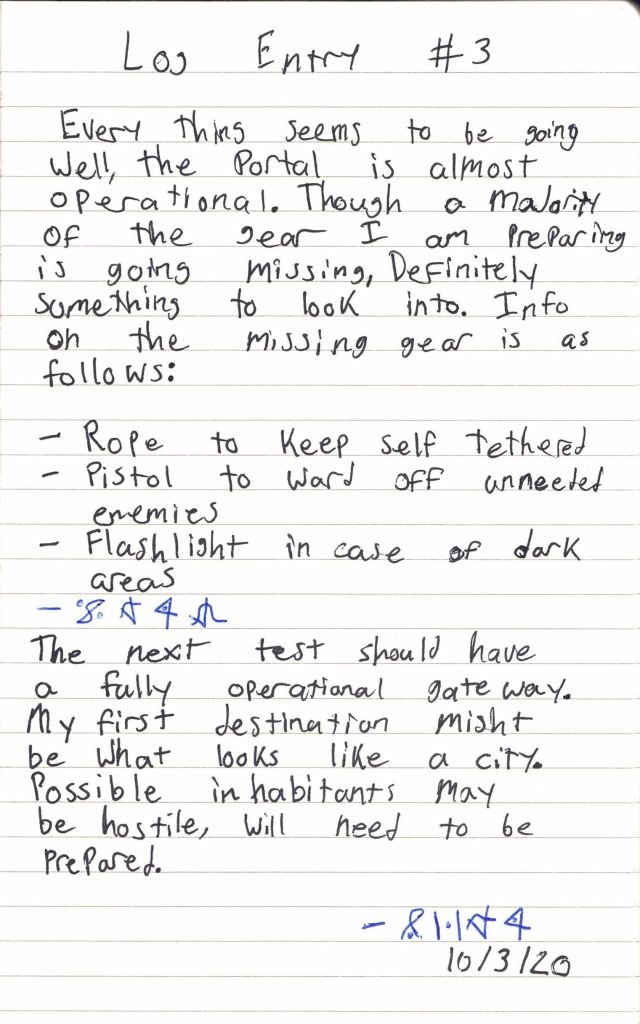 Log Entry #3
Every thing seems to be going
well, the Portal is almost
operational. Though a majority
of the gear I am preparing
is going missing, Definitely
something to look into. Info
on the missing gear is as
follows:
- Rope to keep self tethered
- Pistol to ward off unneeded
enemies
- Flashlight in case of dark
areas
The next test should have
a fully operational gate way.
My first destination might
be what looks like a city.
Possible inhabitants may
be hostile, will need to be
prepared.
10/3/20